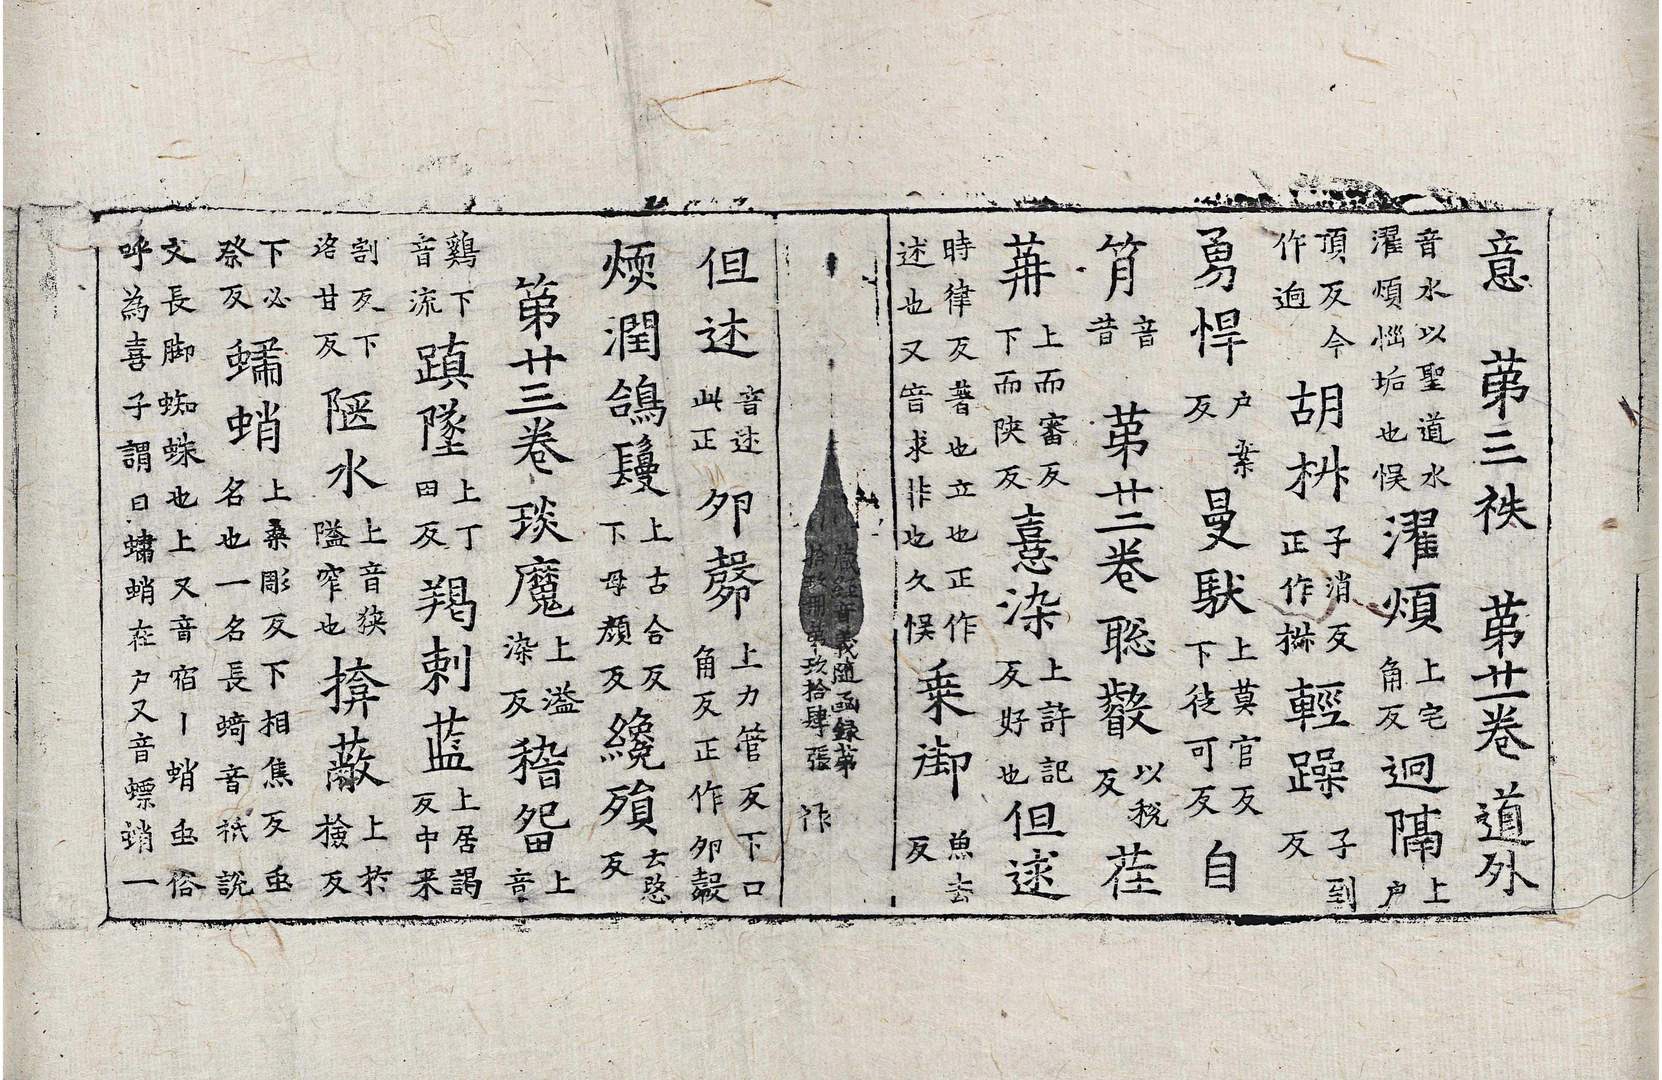 意　苐三祑　苐廿一卷　道外
音水以聖道水濯煩惱垢也悮　濯煩　上宅角反　迥隔　上户
頂反今作逈　胡枡　子消反正作㭰　輕躁　子到反
勇悍　户反　曼馱　上莫官反下徒可反　自
㫺　音昔　苐廿二卷　聡叡　以稅反　荏
苒　上而審反下而陜反　憙染　上許記反好也　但逑
時律反著也立也正作述也又音求非也久悮　乗御　魚去反
藏經音義随函録苐拾玖冊苐玖拾肆張　作
但述　音述此正　夘㲉　上力管反下口角反正作卵㲉
煗潤鴿鬘　上古合反下母顔反　纔殞　云愍反
苐廿三卷　琰魔　上溢染反　稽㽜　上音
鷄下音流　蹎墜　上丁田反　羯剌藍　上居謁反中来
割反下洛甘反　陿水　上音狭隘窄也　揜蔽　上於撿反
下必祭反　蠨蛸　上桑彫反下相焦反虫名也一名長蹄音祇說
文長脚蜘蛛也上又音宿丨蛸虫俗呼為喜子謂曰蠨蛸在户又音螵蛸一